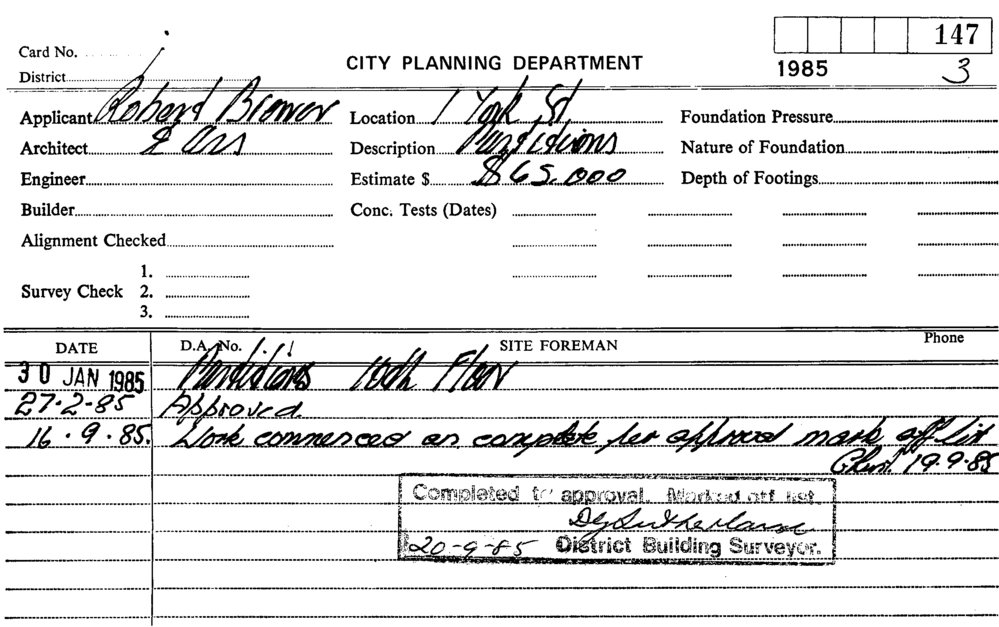 147
Card No.
CITY PLANNING DEPARTMENT
1985 3
District
Applicant Robert Brown Location 1 York St. Foundation Pressure
Architect & Ass Description Partitions Nature of Foundation
Engineer Estimate $ $65.000 Depth of Footings
Builder Conc. Tests (Dates)
Alignment Checked
1.
Survey Check 2.
3.
DATE D.A. No. SITE FOREMAN Phone
30 JAN 1985 Partitions 10th Floor
27-2-85 Approved.
16.9.85. Work commenced as complete per approval mark off list
19.9.85
Completed to approval. Marked off list.
Sutherland
20-9-85 District Building Surveyor.